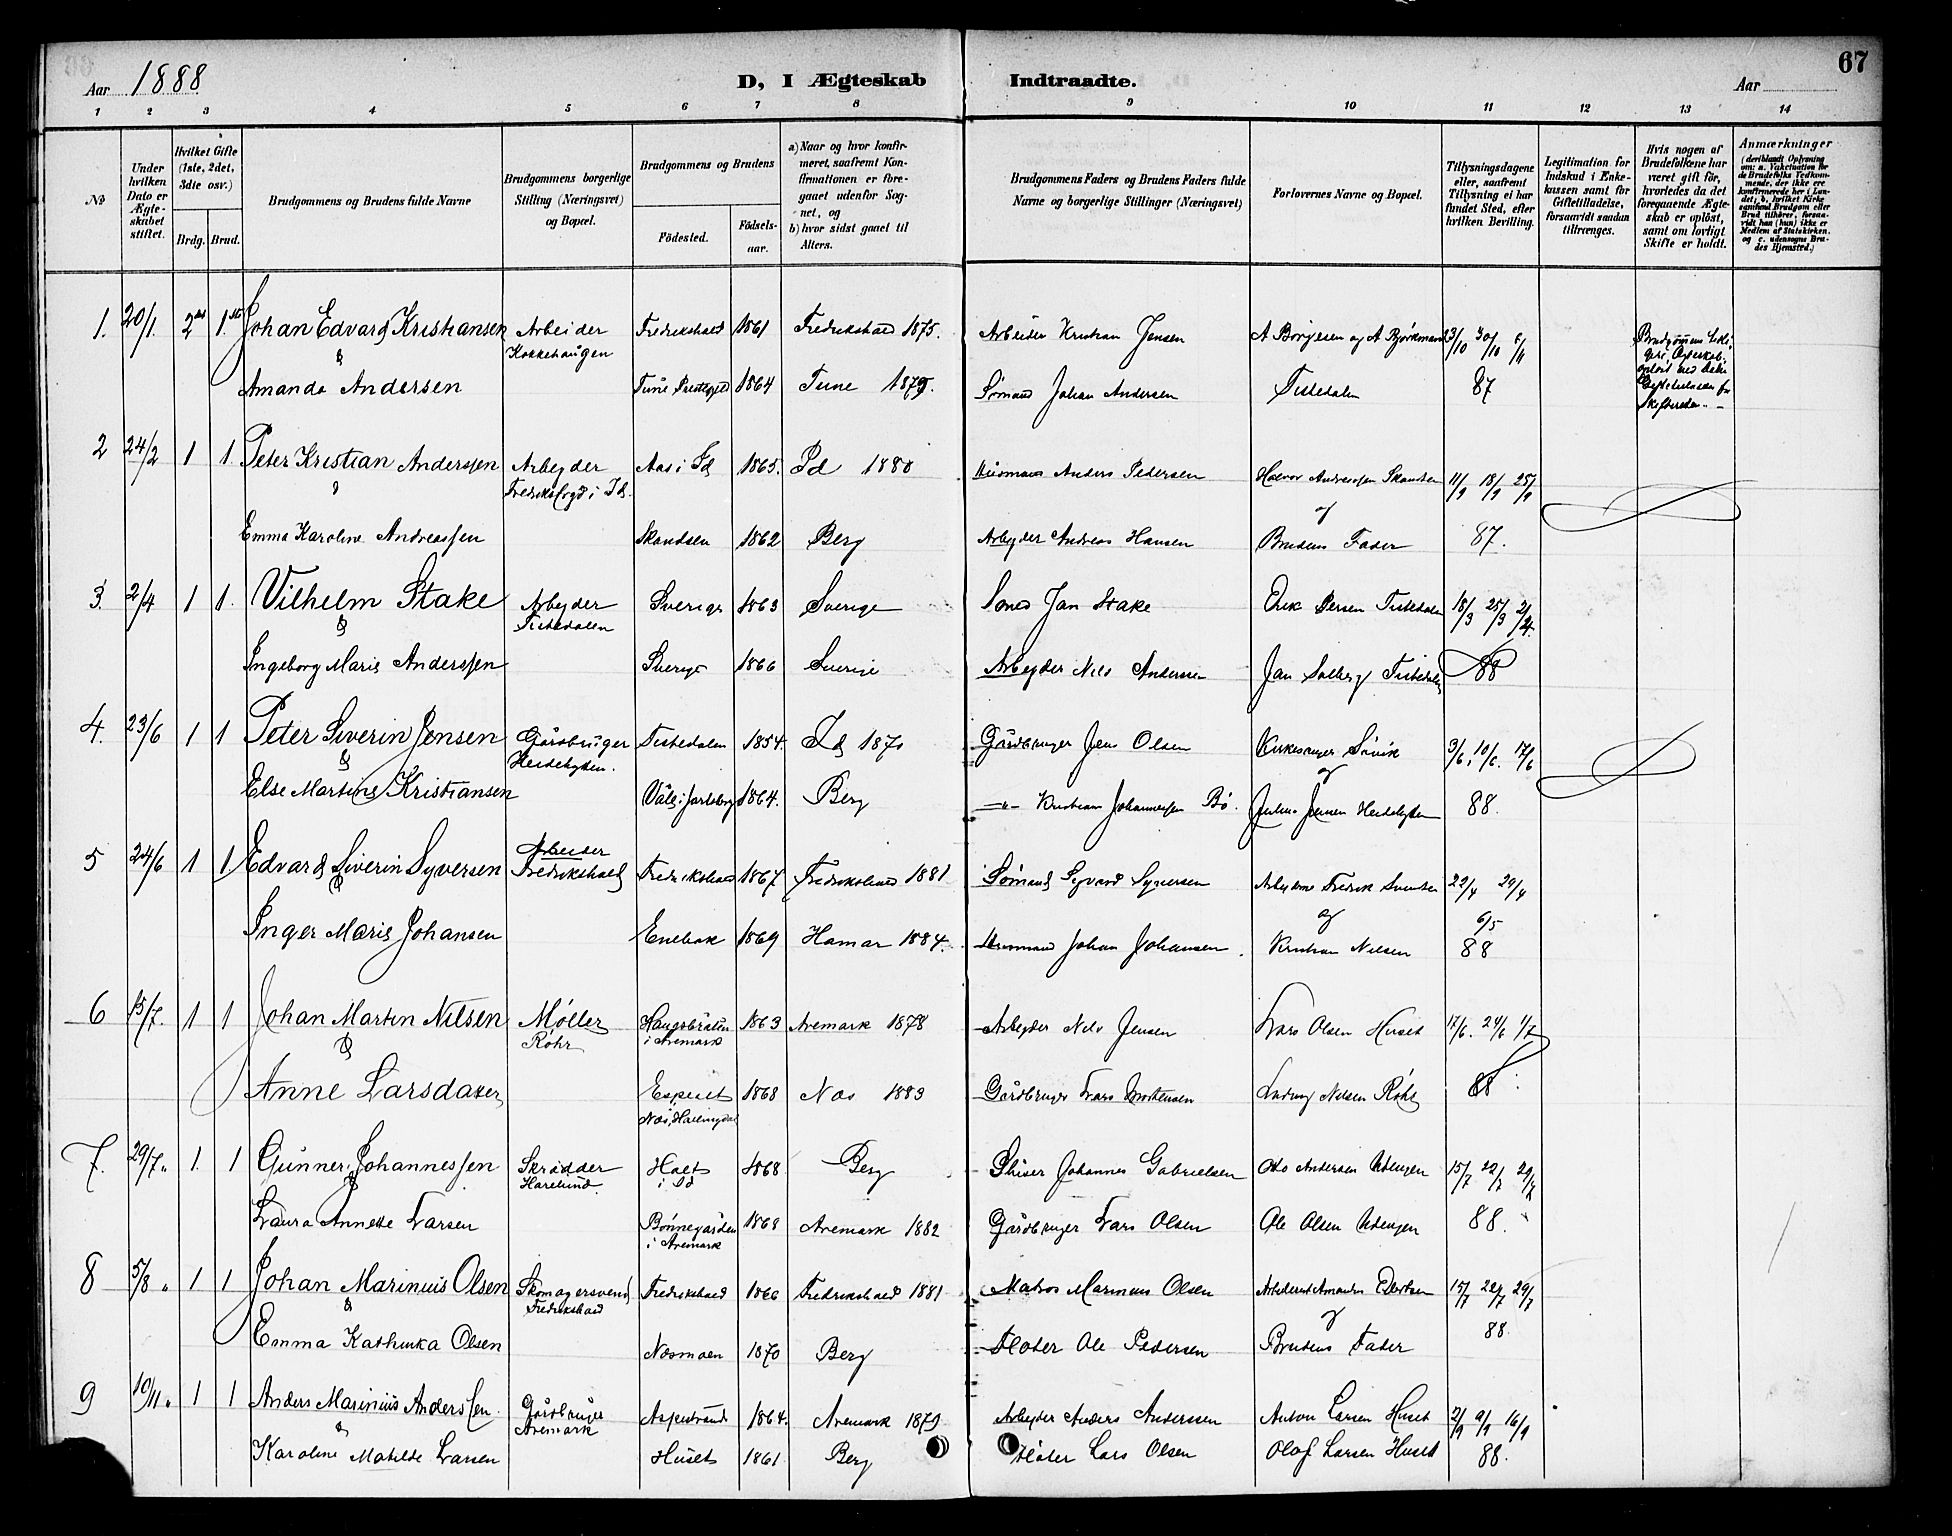 67
Aar 1888
D, I Ægteskab Indtraadte.
Aar
1 2 3 4 5 6 7 8 9 10 11 12 13 14
No
Under hvilken Dato er Ægteskabet stiftet.
Hvilket Gifte (1ste, 2det, 3die osv.)
Brdg. Brud.
Brudgommens og Brudens fulde Navne
Brudgommens borgerlige Stilling (Næringsvei) og Bopæl.
Brudgommens og Brudens
Fødested. Fødselsaar.
a) Naar og hvor konfirmeret, saafremt Konfirmationen er foregaaet udenfor Sognet, og
b) hvor sidst gaaet til Alters.
Brudgommens Faders og Brudens Faders fulde Navne og borgerlige Stillinger (Næringsvei)
Forlovernes Navne og Bopæl.
Tillysningsdagene eller, saafremt Tillysning ei har fundet Sted, efter hvilken Bevilling.
Legitimation for Indskud i Enkekassen samt for Giftetilladelse, forsaavidt saadan tiltrænges.
Hvis nogen af Brudefolkene har været gift før, hvorledes da det foregaaende Ægteskab er opløst, samt om lovligt Skifte er holdt.
Anmærkninger
1. 20/1. 2det 1.ste Johan Edvard Kristiansen Arbeider Fredrikshald 1861 Fredrikshald 1875. Arbeider Kristian Jensen A Borgesen og A Bjørkmand 23/10 30/10 6/11
& Kokkehaugen
Amanda Andersen Tune Prestegjeld 1864 Tune 1879. Sømand Johan Andersen Tistedalen 87
2 24/2 1 1. Peter Kristian Anderssen Arbejder Aas i Id 1865. Id 1880 Husmand Anders Pedersen Halvor Andreassen Skandsen 11/9 18/9 25/9
& i Id. og
Emma Karoline Andreassen Skandsen 1862 Berg Arbejder Andreas Hansen Brudens Fader 87.
3. 2/4 1 1. Vilhelm Stake Arbejder Sverige 1863 Sverige Jan Stake Erik Persen Tistedalen 18/3 25/3 2/4.
& Tistedalen
Ingeborg Marie Anderssen Sverige 1866 Sverige Arbejder Nils Andersen Jan Solberg Tistedalen 88
4. 23/6 1 1 Peter Siverin Jensen Gårdbruger Tistedalen 1854. Id 1870 Gårdbruger Jens Olsen Kirkesanger Sørvik 3/6. 10/6. 17/6
& og
Else Martine Kristiansen Våle i Jarlsberg 1864. Berg —"— Kristian Johannessen Bø. Julius Jensen 88.
5 24/6 1 1 Edvard Siverin Syversen Arbeider Fredrikshald Fredrikshald 1867 Fredrikshald 1881 Sømand Syvard Syversen Arbejderne Fredrik Svendsen 22/4 29/4
& og 6/5
Inger Marie Johansen Enebak 1869 Hamar 1884. Johan Johansen. Kristian Nilsen 88
6 15/7. 1 1 Johan Martin Nilsen Møller Haugsbråten 1863 Aremark 1878 Arbejder Nils Jensen Lars Olsen Huset 17/6. 24/6 1/7
& Röhr i Aremark
Anne Larsdater Espeset 1868 Nes 1883 Gårdbruger Lars Mortensen Ludvig Nilsen Röhr 88
Nes, Hallingdal
7. 29/7. 1. 1 Gunner Johannessen Skrædder Holt 1868 Berg Johannes Gabrielsen Otto Andersen Utengen 15/7 22/7 29/7
& Harelund. i Id
Laura Annette Larsen Bönnegården 1868 Aremark 1882 Gårdbruger Lars Olsen Ole Olsen Utengen 88.
i Aremark
8 5/8. 1 1 Johan Marinius Olsen Skomagersvend Fredrikshald 1866 Fredrikshald 1881 Matros Marinius Olsen 15/7 22/7 29/7
& Fredrikshald og
Emma Kathinka Olsen Næsmoen 1870 Berg Fløter Ole Pedersen Brudens Fader 88.
9 10/11. 1 1 Anders Marinius Anderssen. Gårdbruger Aspestrand 1864. Aremark 1879 Arbejder Anders Anderssen Anton Larsen Huset 2/9 9/9 16/9
& Aremark
Karoline Matilde Larsen Huset 1861 Berg Fløter Lars Olsen Olaf Larsen Huset 88.